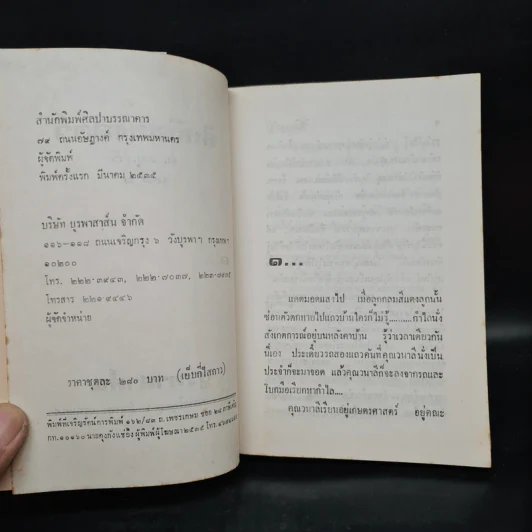 สำนักพิมพ์ศิลปาบรรณาคาร
๗๙ ถนนอัษฎางค์ กรุงเทพมหานคร
ผู้จัดพิมพ์
พิมพ์ครั้งแรก มีนาคม ๒๕๓๕
บริษัท บูรพาสาส์น จำกัด
๑๑๖-๑๑๘ ถนนเจริญกรุง ๖ วังบูรพาฯ กรุงเทพฯ
๑๐๒๐๐
โทร. ๒๒๒-๓๙๔๓, ๒๒๒-๗๐๓๗,
โทรสาร ๒๒๑-๙๔๔๖
ผู้จัดจำหน่าย
ราคาชุดละ ๒๘๐ บาท (เย็บกี่ไสกาว)
พิมพ์ที่เจริญรัตน์การพิมพ์ ๑๖๒/๘๓ ถ.เพชรเกษม ซอย ๒๘
กท.๑๐๑๖๐ ผู้พิมพ์ผู้โฆษณา ๒๕๓๕ โทร.
๑...
แดดรอดแสงไป เมื่อลูกกลมสีแดงลูกนั้น
ซ่อนตัวตกหายไปแถวบ้านใครก็ไม่รู้.........กำไลนั่ง
สังเกตการณ์อยู่บนหลังคาบ้าน รู้ว่าเวลาเดียวกัน
นี้เอง ประเดี๋ยวรถสองแถวคันที่คุณวนาลีนั่งเป็น
ประจำก็จะมาจอด แล้วคุณวนาลีก็จะลงจากรถและ
โบกมือเรียกหากำไล....
คุณวนาลีเรียนอยู่เกษตรศาสตร์ อยู่คณะ